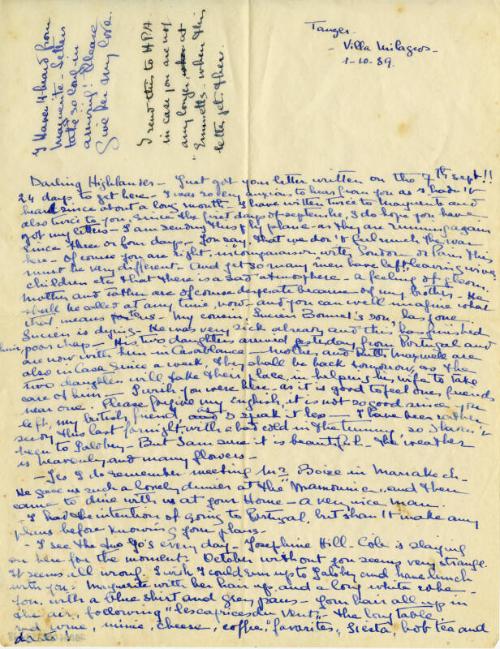 Tanger
- Villa Milagros -
1-10-39.
I haven't heard from
Marguerite - Letters
take so long in
arriving! Please
Give her my love.
I send this to HPA
in case you are not
any longer at
"Emmetts" when this
letter gets there.
Darling Highlander - Just got your letter written on the 7th Sept!!
24 days to get here - I was so very anxious to hear from you as I hadn't
heard since about a long month - I have written twice to Marguerite and
also twice to you, since the first days of september, I do hope you have
got my letters - I am sending this by plane as they are running again
since three or four days - You say that we don't feel much the war
here - Of course you are right, in comparaison with London or Paris this
must be very different - And yet so many men have left leaving wives
children etc that there is a sad atmosphere - a feeling of gloom.
Mother and father are of course desperate because of my brother - He
shall be called at any time, now - and you can well imagine what
that means - My cousin Lucien Bonnet's son, has gone -
Lucien is dying - He was very sick already and this has finished
him, poor chap - His two daughters arrived yesterday from Portugal and
are now with him in Casablanca - Mother and are
also in Casa since a week. They shall be back tomorrow, as the
two daughters will take their place in helping his wife to take
care of him - I wish you were here as it is good to feel one's friends
near one. Please forgive my English, it is not so good since you
left, my British friend, and I speak it less - I have been rather
seedy this last fortnight with a bad cold in the tummy so I haven't
been to Jalobey - But I am sure it is beautiful - the weather
is heavenly and many flowers -
- Yes I do remember meeting Mr Boice in Marrakech -
He gave us such a lovely dinner at the "Mamounia", and then
came to dine with us at your Home - a very nice man.
- I had the intention of going to Portugal, but shan't make any
plans before knowing your plans -
- I see the two Jo's every day - Josephine Hill. Cole is staying
on here for the moment. October without you seems very strange.
It seems all wrong. I wish I could run up to Jalobey and have lunch
with you: Marguerite with her hair up, and a long white robe -
You, with a blue shirt and grey pants - your hair all up in
the air, following "les caprices du Vent" - The lay table
red wine, minie, cheese, coffee, "favorites", siesta, hot tea and
dates!